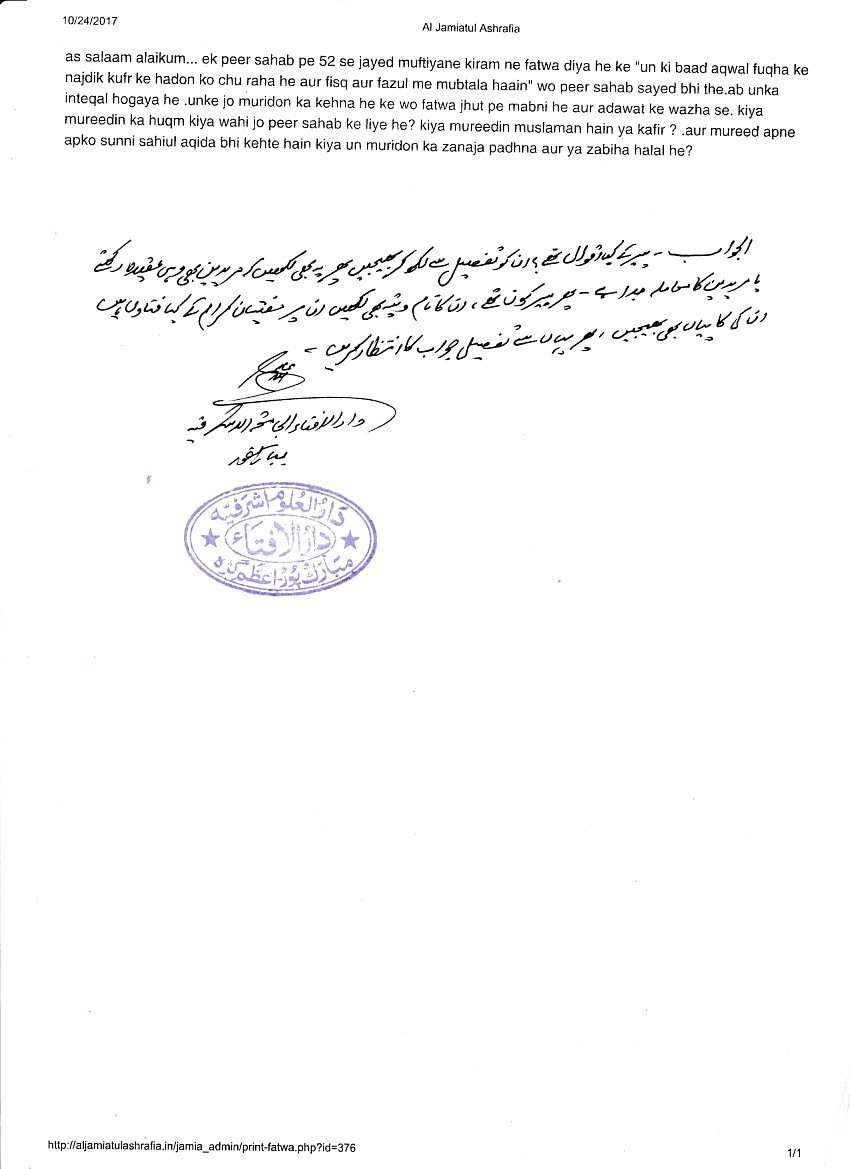 10/24/2017
Al Jamiatul Ashrafia
as salaam alaikum... ek peer sahab pe 52 se jayed muftiyane kiram ne fatwa diya he ke "un ki baad aqwal fuqha ke
najdik kufr ke hadon ko chu raha he aur fisq aur fazul me mubtala haain" wo peer sahab sayed bhi the.ab unka
inteqal hogaya he .unke jo muridon ka kehna he ke wo fatwa jhut pe mabni he aur adawat ke wazha se. kiya
mureedin ka huqm kiya wahi jo peer sahab ke liye he? kiya mureedin muslaman hain ya kafir ? .aur mureed apne
apko sunni sahiul aqida bhi kehte hain kiya un muridon ka zanaja padhna aur ya zabiha halal he?
الجواب ــ پیر کے کیا اقوال تھے؟ ان کو تفصیل سے لکھ کر بھیجیں پھر یہ بھی لکھیں کہ مریدین بھی وہی عقیدہ رکھتے
یا مریدین کا معاملہ جدا ہے ـ پھر پیر کون تھے، ان کا نام بھی لکھیں ان پر مفتیان کرام کے کیا فتاویٰ ہیں
ان کی کاپیاں بھی بھیجیں، پھر یہاں سے تفصیلی جواب کا انتظار کریں ـ
دار الافتاء الجامعۃ الاشرفیہ
مبارکپور
دارُالعُلوم اشرفیّہ
دارُالافتاء
مبارک پور اعظم گڑھ
http://aljamiatulashrafia.in/jamia_admin/print-fatwa.php?id=376
1/1